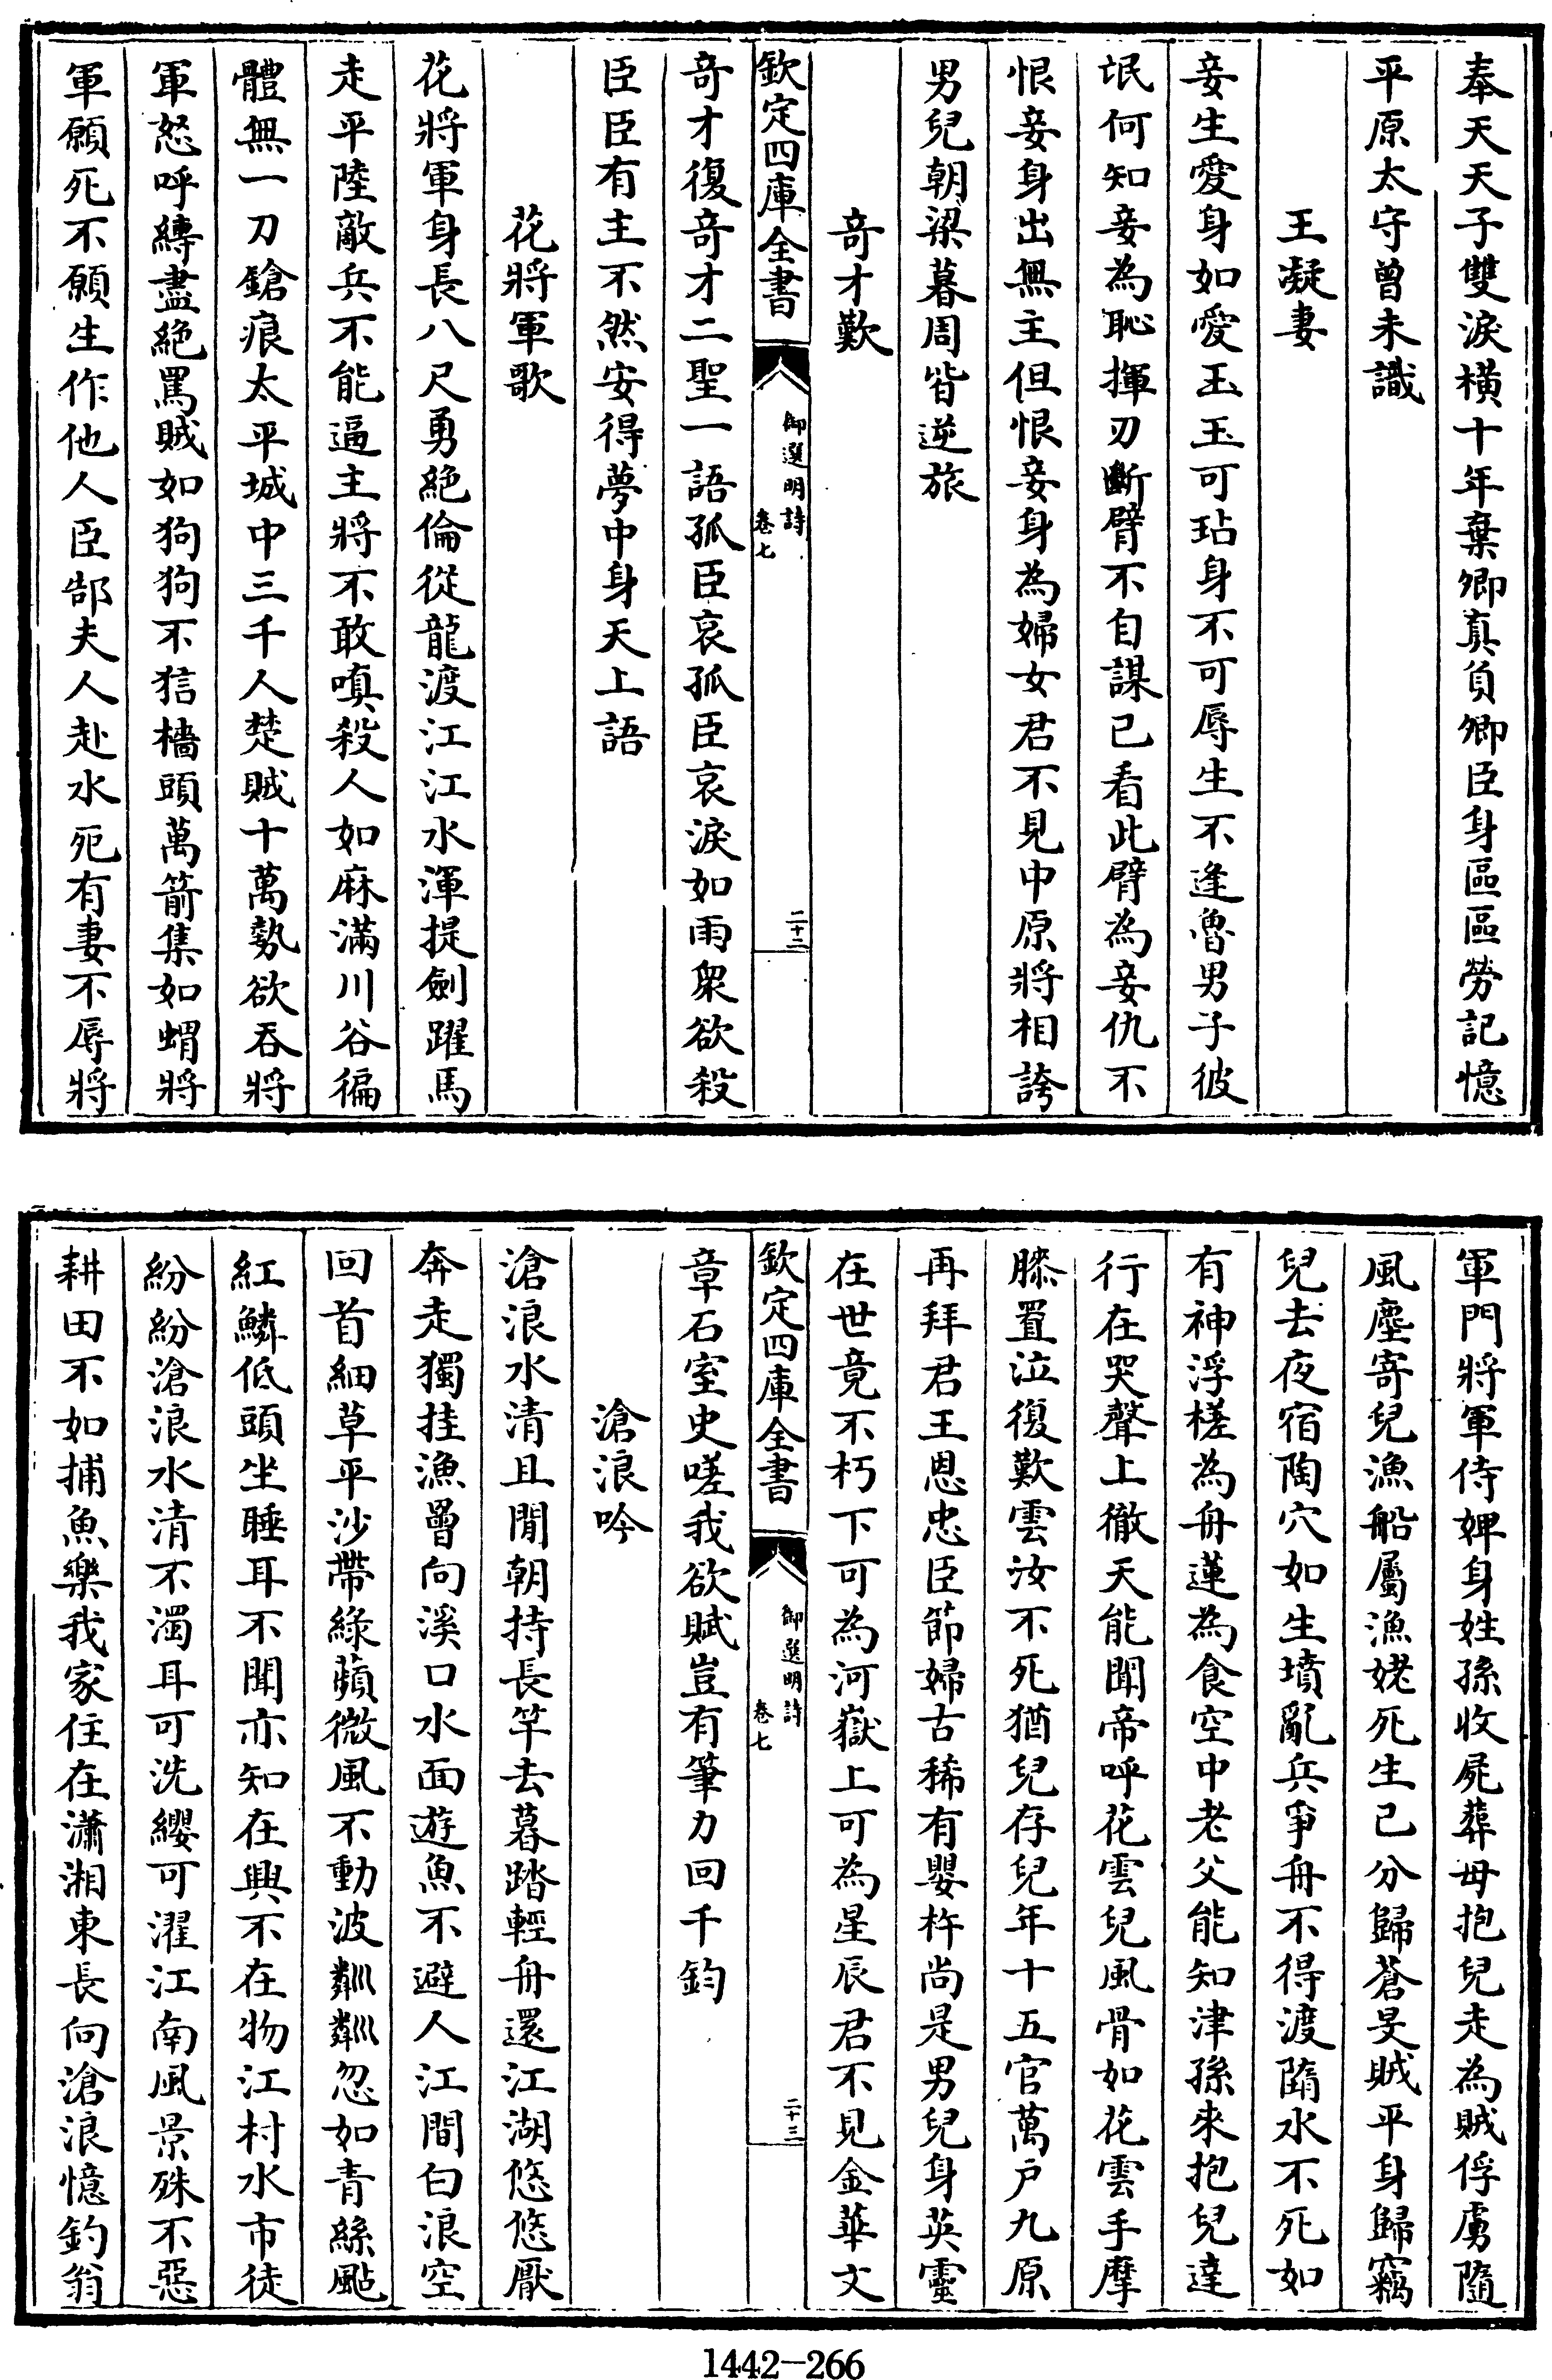 奉天天子雙淚橫十年棄卿真負卿臣身區區勞記憶
平原太守曾未識
王凝妻
妾生愛身如愛玉玉可玷身不可辱生不逢魯男子彼
氓何知妾為恥揮刃斷臂不自謀已看此臂為妾仇不
恨妾身出無主但恨妾身為婦女君不見中原將相誇
男兒朝梁暮周皆逆旅
奇才歎
欽定四庫全書
御選明詩
卷七
二十二
奇才復奇才二聖一語孤臣哀孤臣哀淚如雨衆欲殺
臣臣有主不然安得夢中身天上語
花將軍歌
花將軍身長八尺勇絶倫從龍渡江江水渾提劍躍馬
走平陸敵兵不能逼主將不敢嗔殺人如麻滿川谷徧
體無一刀鎗痕太平城中三千人楚賊十萬勢欲吞將
軍怒呼縳盡絕罵賊如狗狗不狺檣頭萬箭集如蝟將
軍願死不願生作他人臣郜夫人赴水死有妻不辱將
軍門將軍侍婢身姓孫收屍葬母抱兒走為賊俘虜隨
風塵寄兒漁船屬漁姥死生已分歸蒼旻賊平身歸竊
兒去夜宿陶穴如生墳亂兵爭舟不得渡墮水不死如
有神浮槎為舟蓮為食空中老父能知津孫來抱兒達
行在哭聲上徹天能聞帝呼花雲兒風骨如花雲手摩
膝置泣復歎雲汝不死猶兒存兒年十五官萬户九原
再拜君王恩忠臣節婦古稀有嬰杵尚是男兒身英靈
在世竟不朽下可為河嶽上可為星辰君不見金華文
欽定四庫全書
御選明詩
卷七
二十三
章石室史嗟我欲賦豈有筆力回千鈞
滄浪吟
滄浪水清且閒朝持長竿去暮踏輕舟還江湖悠悠厭
奔走獨挂漁罾向溪口水面遊魚不避人江間白浪空
回首細草平沙帶綠蘋微風不動波粼粼忽如青絲颭
紅鱗低頭坐睡耳不聞亦知在興不在物江村水市徒
紛紛滄浪水清不濁耳可洗纓可濯江南風景殊不惡
耕田不如捕魚樂我家住在瀟湘東長向滄浪憶釣翁
1442-266